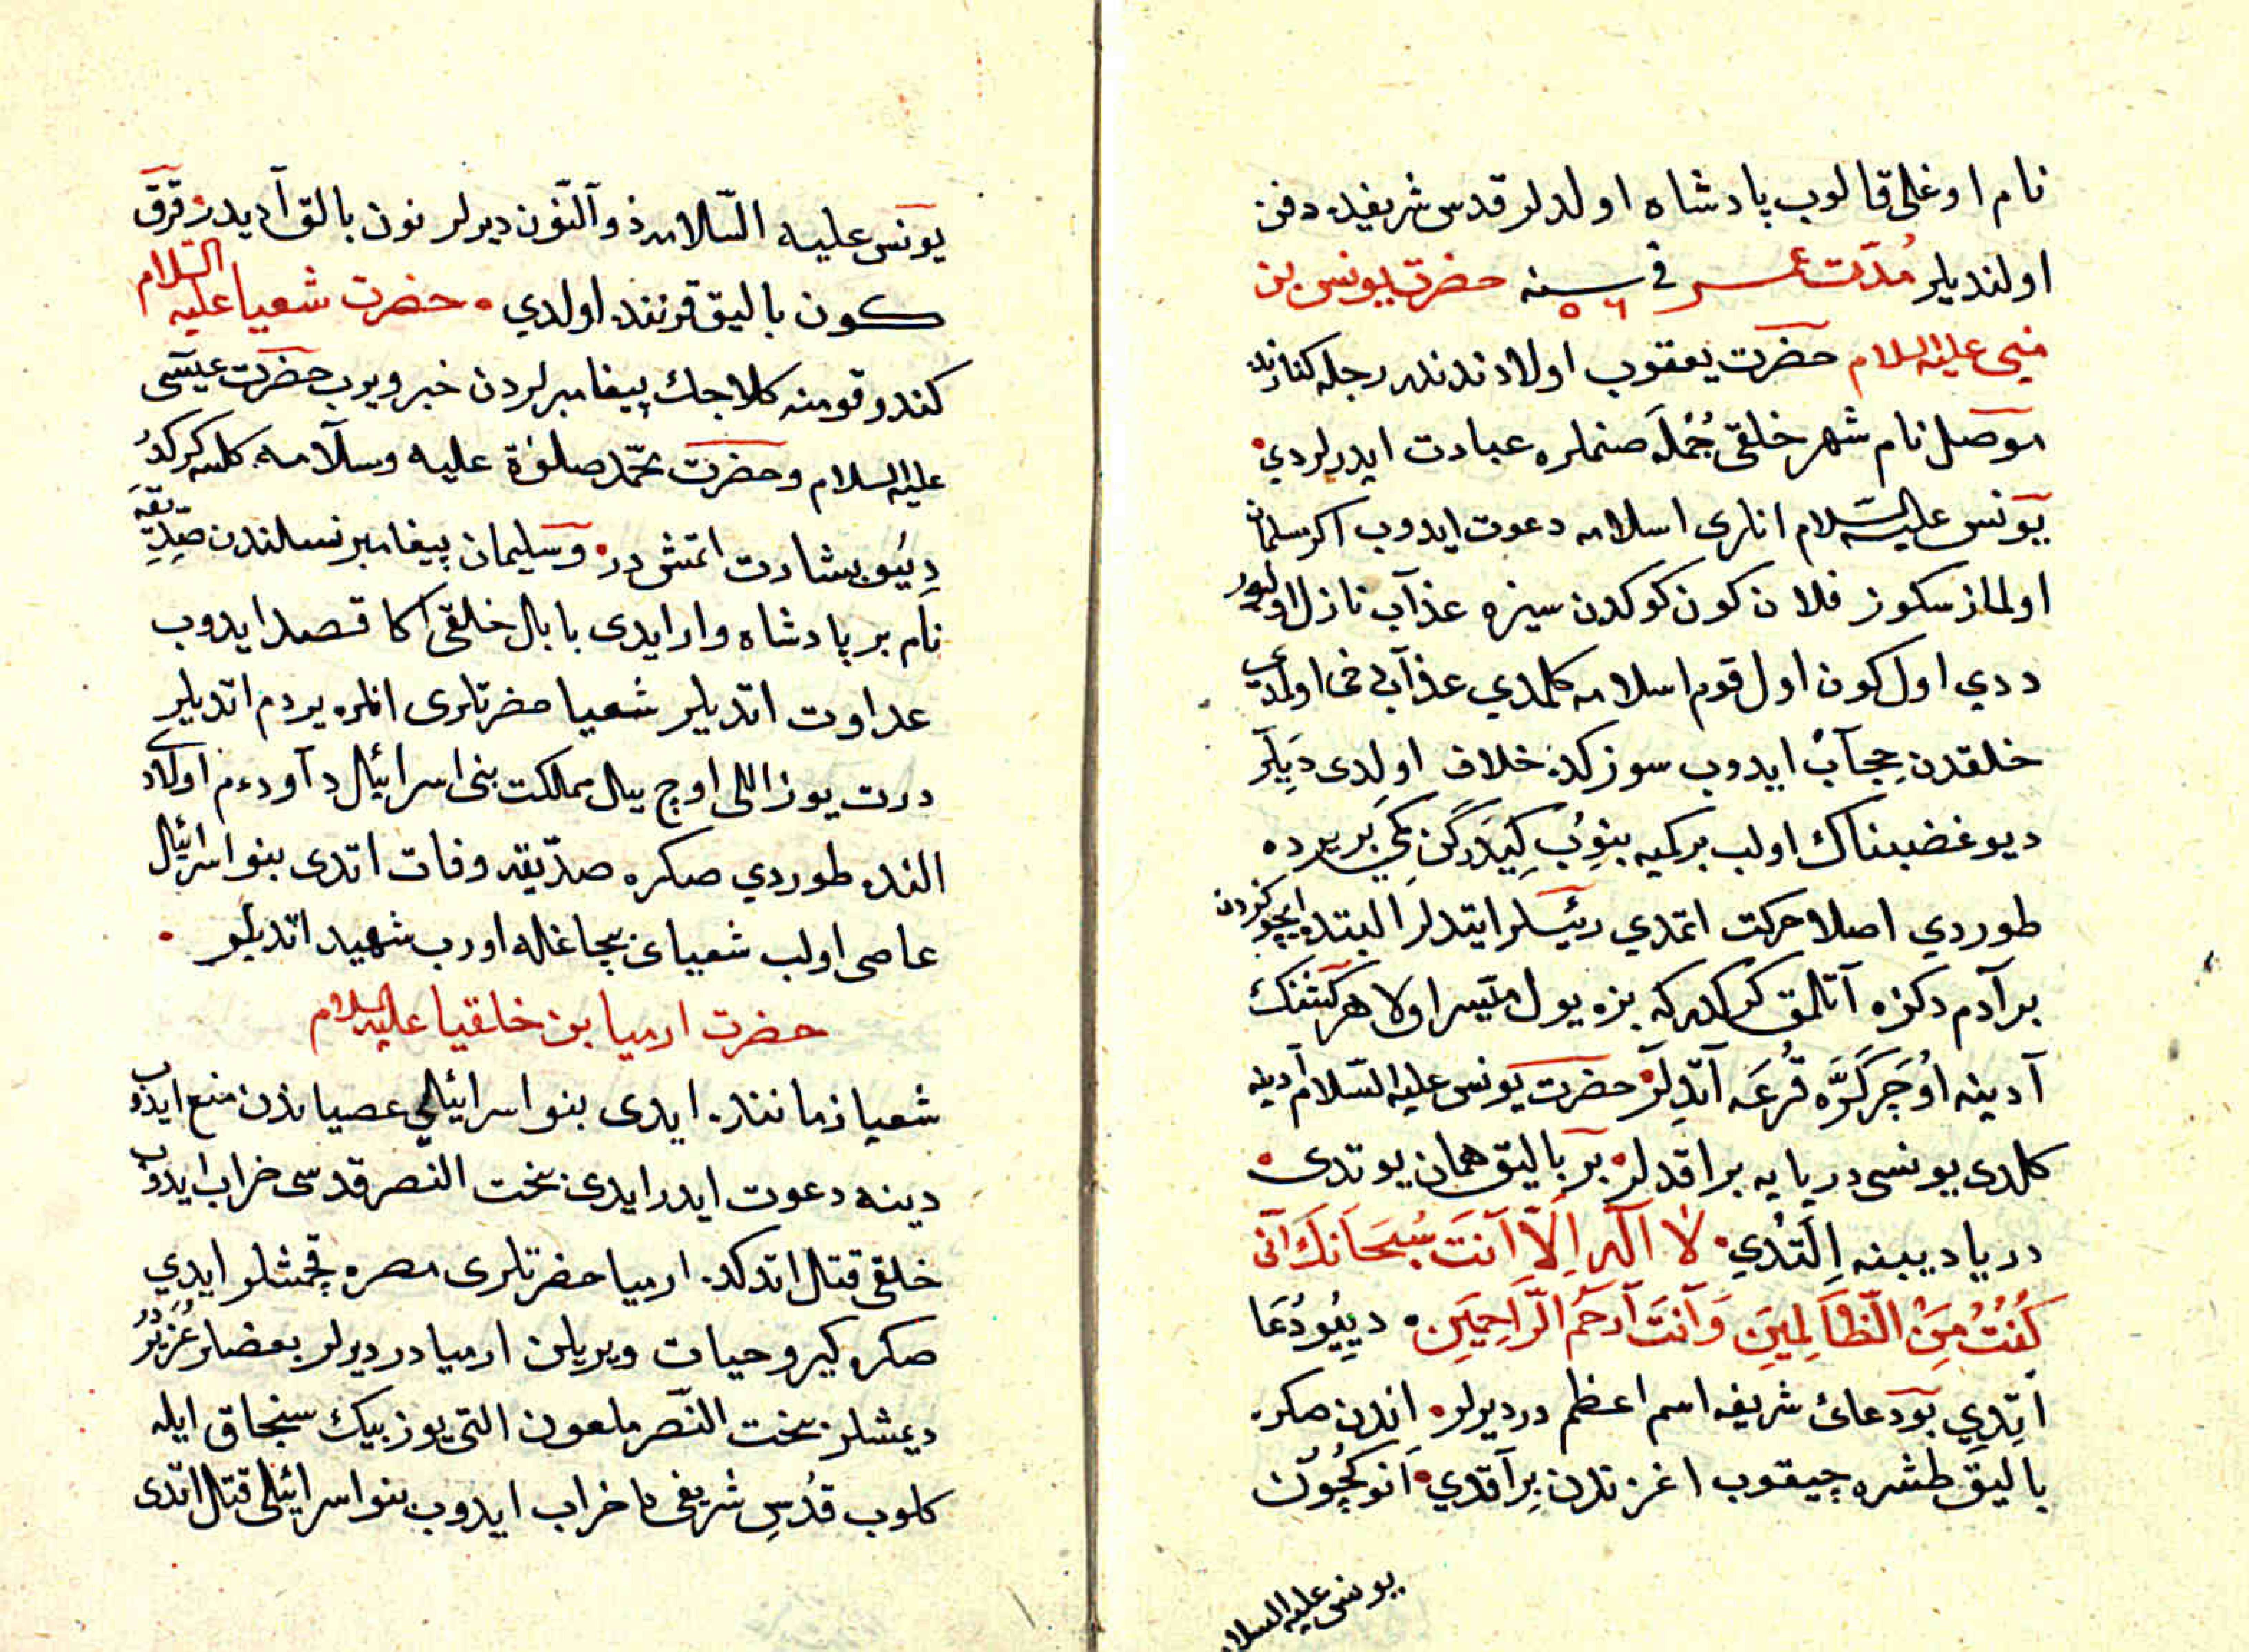 نام اوغلی قالوب پادشاه اولدلر قدس شریفده دفن
اولندیلر مُدّت عمر فی سنه ٥٦ حضرت یونس بن
متی علیه السلام حضرت یعقوب اولادندندر دجله کنارنده
موصل نام شهر خلقی جُمْلَه صنملره عبادت ایدرلردی
یونس علیه السّلام انلری اسلامه دعوت ایدوب اکر مسلمان
اولمازسکوز فلان کون کوکدن سیزه عذآب نازل اولیور
ددی اول کون اول قوم اسلامه کلمدی عذآب دخی اولمدی
خلقدن حِجآبْ ایدوب سوزکده خلاف اولدی دَیلَر
دیو غضبناك اولب بر کمیه بِنوُبْ کِیدَرکَن کمی بَر یرده
طوردی اصلا حرکت اتمدی رئیسلر ایتدلر البته ایچوکزدن
بر آدم دکزه آتلمق کرکدر که بزه یول میسّر اولا هر کشنك
آدینه اُوجَر کَرَّه قُرعَه آتدِلَر حضرت یونس علیه السّلام آدینه
کلدی یونسی دریایه براقدلر بر بالیق همان یوتدی
دریا دیبنه اِلَتدی لا اله اِلاّ اَنتَ سُبحَانَكَ اَنّی
کُنْتُ مِنَ الظّالِمینَ وَ اَنْتَ اَرحَم الرّاحِمینَ دیِیُو دُعَا
اتدِی بو دعای شریفه اسم اعظم در دیرلر اندن صکره
بالیق طشره چیقوب اغزندن برآقدی اَنوکچُون
یونس علیه السلام
یونس علیه السّلامه ذو آلنّون دیرلر نون بالق آدیدر قرق
کون بالیق قرننده اولدی حضرت شعیا علیه السلام
کندو قومنه کلاجك پیغامبرلردن خبر ویروب حضرت عیسی
علیه السلام و حضرت محمّد صلوٰة علیه وسلآمه کلسه کرکدُر
دِیُو بشارت اتمش در وسلیمان پیغامبر نسلندن صِدّیقَه
نام بر پادشاه وار ایدی بابل خلقی اکا قصد ایدوب
عداوت اتدیلر شعیا حضرتلری انلره یردم اتدیلر
درت یوز اللی اوچ ییل مملکت بنی اسرائیل دآود م اولاد
النده طوردی صکره صدّیقه وفات اتدی بنو اسرائیل
عاصی اولب شعیای بچاغله اورب شهید اتدیلر
حضرت ارمیا بن خلقیا علیه السلام
شعیا زماننده ایدی بنو اسرائیلی عصیاندن منع ایدوب
دینه دعوت ایدر ایدی بخت النّصر قدسی خراب ایدوب
خلقی قتال اتدکده ارمیا حضرتلری مصره قچمشلر ایدی
صکره کیرو حیات ویریلن ارمیا در دیرلر بعضلر عُزَیْردُر
دیمشلر بخت النّصر ملعون التی یوز بیك سنجاق ایله
کلوب قدُسِ شریفی خراب ایدوب بنو اسرائیلی قتال اتدی